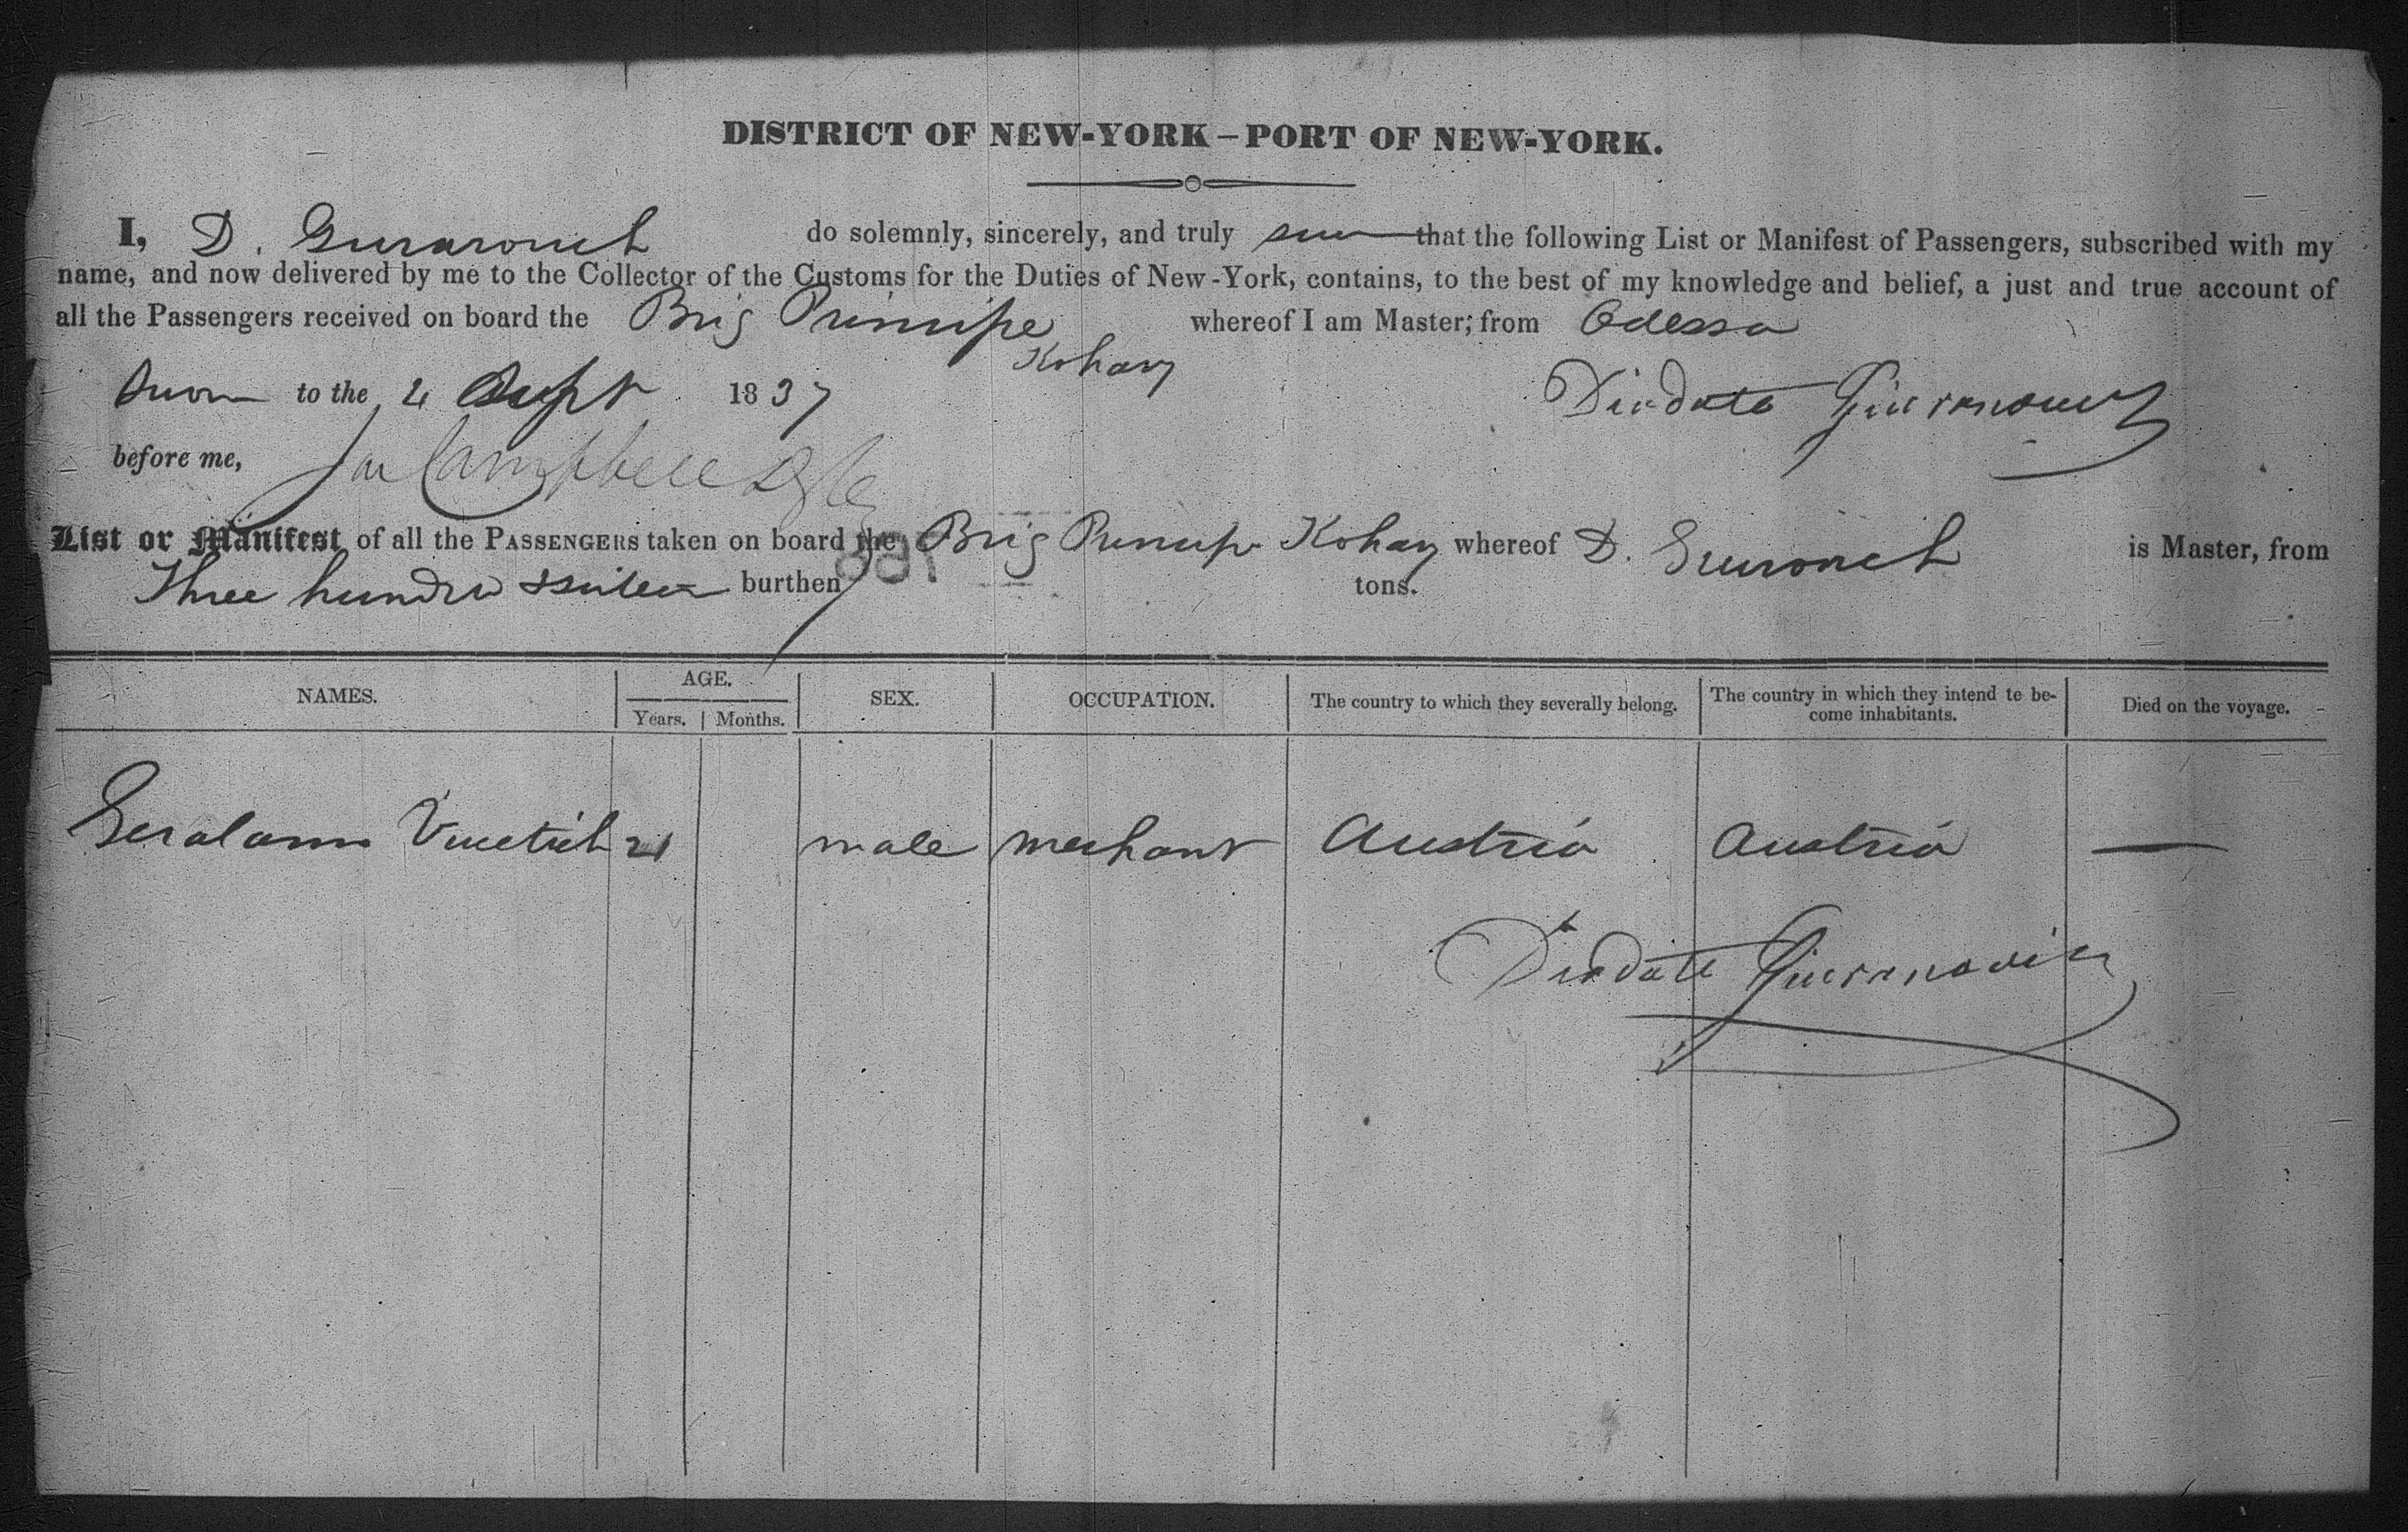 DISTRICT OF NEW-YORK – PORT OF NEW-YORK.
I, D. do solemnly, sincerely, and truly that the following List or Manifest of Passengers, subscribed with my
name, and now delivered by me to the Collector of the Customs for the Duties of New-York, contains, to the best of my knowledge and belief, a just and true account of
all the Passengers received on board the Brig Principe whereof I am Master; from Odessa
Kohary
to the 4 Sept 1837
Diodato Giuranovich
before me, Campbell
List or Manifest of all the PASSENGERS taken on board the Brig Kohary whereof D. is Master, from
Three hundred burthen tons.
NAMES. AGE. SEX. OCCUPATION. The country to which they severally belong. The country in which they intend te be-
come inhabitants. Died on the voyage.
Years. Months.
21 male merchant Austria Austria —
Diodato Giuranovich